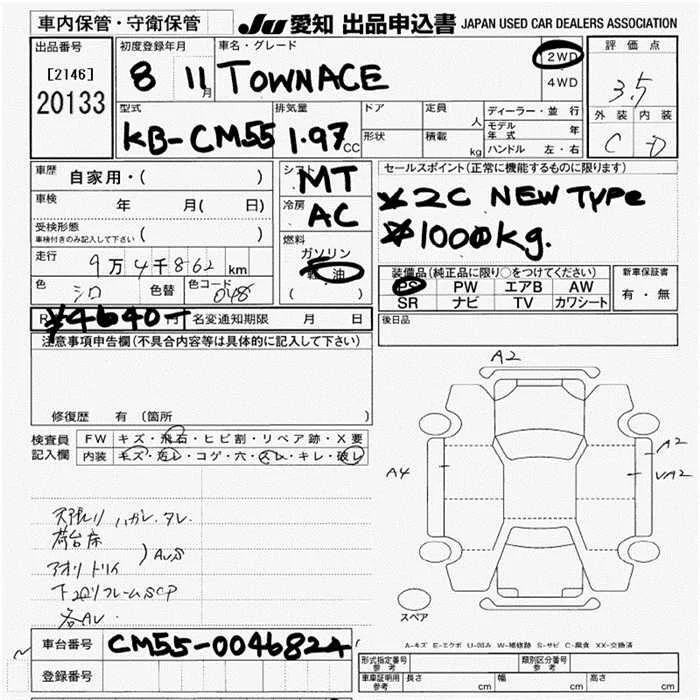 車内保管・守衛保管
JU 愛知 出品申込書 JAPAN USED CAR DEALERS ASSOCIATION
出品番号
[2146]
20133
初度登録年月
8 11月
車名・グレード
TOWNACE
2WD
4WD
評価点
3.5
外装 内装
C D
型式
KB-CM55
排気量
1.97CC
ドア
形状
定員 人
積載 kg
ディーラー・並行
モデル年式 年
ハンドル 左・右
車歴 自家用・( )
車検 年 月( 日)
受検形態
車検付きのみ記入して下さい ( )
走行 9万4千862km
色 シロ 色替 色コード 048
シフト MT
冷房 AC
燃料
ガソリン
軽油
( )
セールスポイント(正常に機能するものに限ります)
*2C NEW TYPE
*1000kg.
装備品(純正品に限り○をつけてください)
PS PW エアB AW
SR ナビ TV カワシート
新車保証書
有・無
R ¥4640- 円 名変通知期限 月 日
後日品
注意事項申告欄(不具合内容等は具体的に記入して下さい)
修復歴 有 (箇所 )
検査員記入欄
FW キズ・飛石・ヒビ割・リペア跡・X要
内装 キズ・汚レ・コゲ・穴・スレ・キレ・破レ
天張り ハガレ.タレ
荷台床
アオリトリイ
)AuS
下回りフレームSCP
各AU
A2
A4
A2
UA2
スペア
A-キズ E-エクボ U-凹み W-補修跡 S-サビ C-腐食 XX-交換済
車台番号 CM55-0046824
登録番号
形式指定番号 参考
類別区分番号 参考
車庫証明用 参考 長さ cm 幅 cm 高さ cm